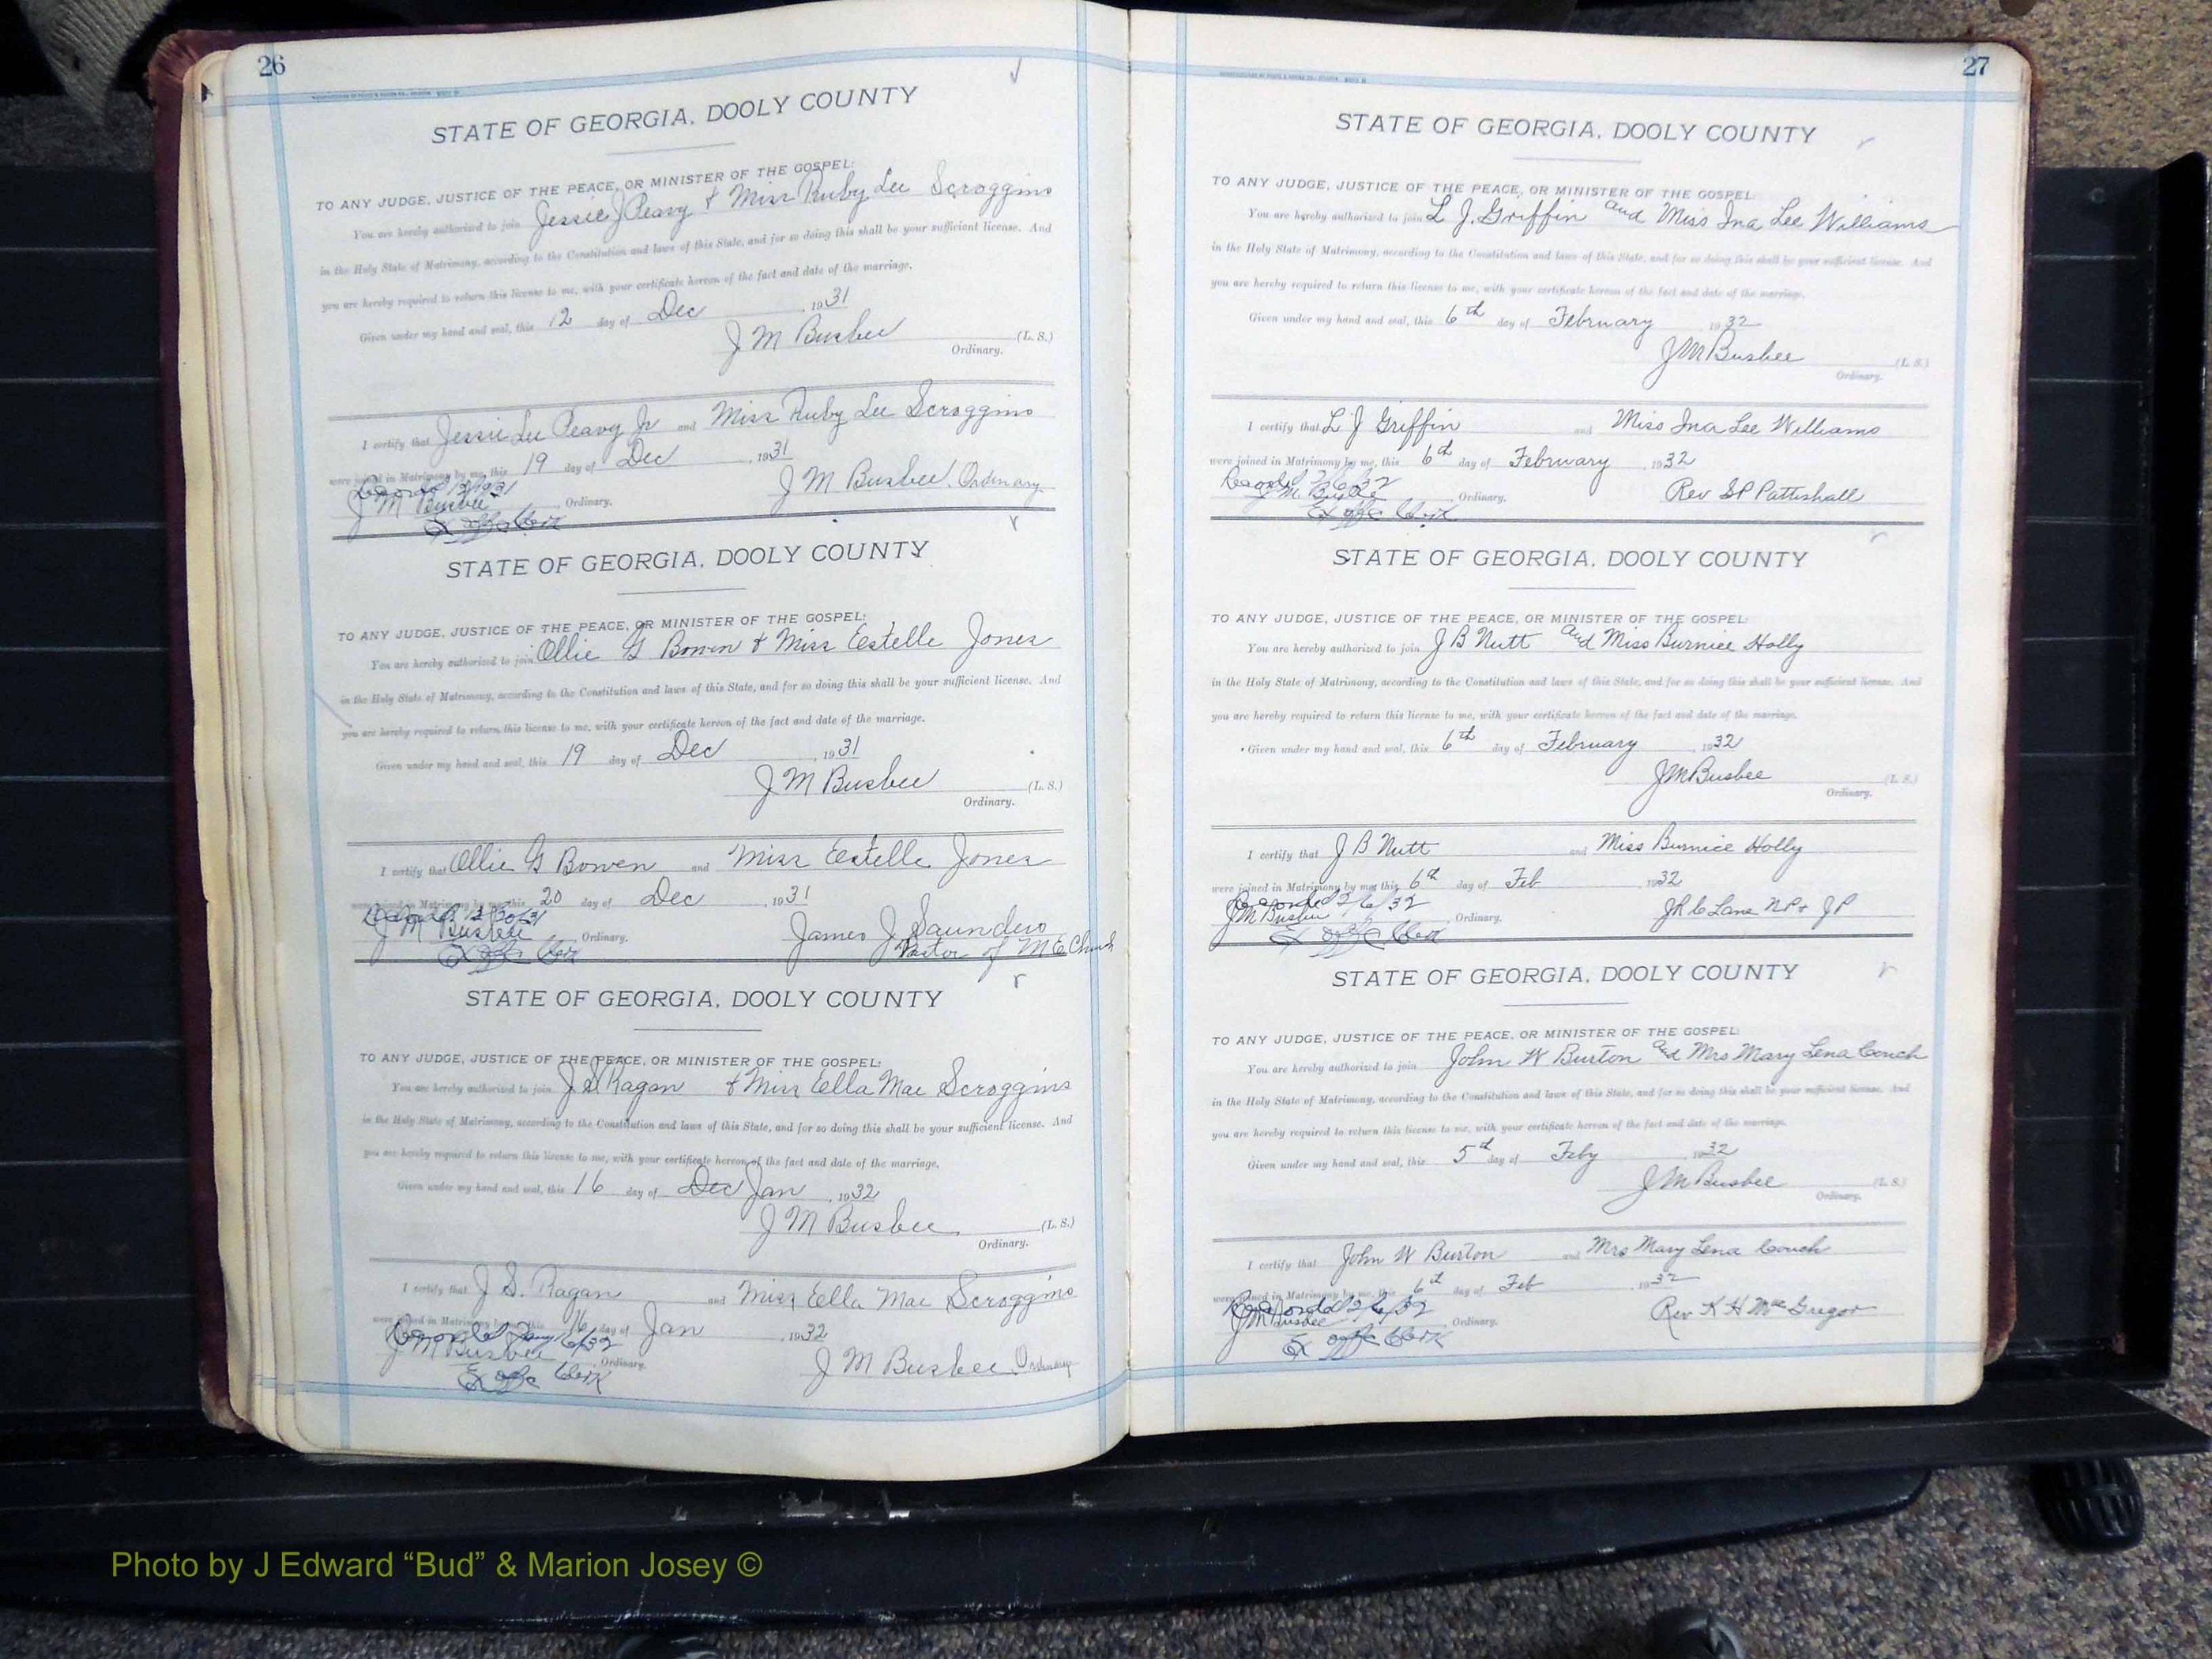 26
STATE OF GEORGIA, DOOLY COUNTY
TO ANY JUDGE, JUSTICE OF THE PEACE, OR MINISTER OF THE GOSPEL:
You are hereby authorized to join Jessie J Peavy & Miss Ruby Lee Scroggins
in the Holy State of Matrimony, according to the Constitution and laws of this State, and for so doing this shall be your sufficient license. And
you are hereby required to return this license to me, with your certificate hereon of the fact and date of the marriage.
Given under my hand and seal, this 12 day of Dec , 1931
J M Busbee (L. S.)
Ordinary.
I certify that Jessie Lee Peavy Jr and Miss Ruby Lee Scroggins
were joined in Matrimony by me, this 19 day of Dec , 1931
J M Busbee, Ordinary
J M Busbee , Ordinary.
Ex offo Clerk
STATE OF GEORGIA, DOOLY COUNTY
TO ANY JUDGE, JUSTICE OF THE PEACE, OR MINISTER OF THE GOSPEL:
You are hereby authorized to join Ollie G Bowen & Miss Estelle Jones
in the Holy State of Matrimony, according to the Constitution and laws of this State, and for so doing this shall be your sufficient license. And
you are hereby required to return this license to me, with your certificate hereon of the fact and date of the marriage.
Given under my hand and seal, this 19 day of Dec , 1931
J M Busbee (L. S.)
Ordinary.
I certify that Ollie G Bowen and Miss Estelle Jones
were joined in Matrimony by me, this 20 day of Dec , 1931
J M Busbee , Ordinary. James J Saunders
Ex offo Clerk Pastor of M E Church
STATE OF GEORGIA, DOOLY COUNTY
TO ANY JUDGE, JUSTICE OF THE PEACE, OR MINISTER OF THE GOSPEL:
You are hereby authorized to join J S Ragan & Miss Ella Mae Scroggins
in the Holy State of Matrimony, according to the Constitution and laws of this State, and for so doing this shall be your sufficient license. And
you are hereby required to return this license to me, with your certificate hereon of the fact and date of the marriage.
Given under my hand and seal, this 16 day of Dec Jan , 1932
J M Busbee (L. S.)
Ordinary.
I certify that J S. Ragan and Miss Ella Mae Scroggins
were joined in Matrimony by me, this 16 day of Jan , 1932
J M Busbee , Ordinary. J M Busbee Ordinary
Ex offo Clerk
27
STATE OF GEORGIA, DOOLY COUNTY
TO ANY JUDGE, JUSTICE OF THE PEACE, OR MINISTER OF THE GOSPEL:
You are hereby authorized to join L J. Griffin and Miss Ina Lee Williams
in the Holy State of Matrimony, according to the Constitution and laws of this State, and for so doing this shall be your sufficient license. And
you are hereby required to return this license to me, with your certificate hereon of the fact and date of the marriage.
Given under my hand and seal, this 6th day of February , 1932
J M Busbee (L. S.)
Ordinary.
I certify that L J Griffin and Miss Ina Lee Williams
were joined in Matrimony by me, this 6th day of February , 1932
Recorded 2/6/32
J M Busbee , Ordinary. Rev S P Pattishall
Ex offo Clerk
STATE OF GEORGIA, DOOLY COUNTY
TO ANY JUDGE, JUSTICE OF THE PEACE, OR MINISTER OF THE GOSPEL:
You are hereby authorized to join J B Nutt and Miss Burnice Holly
in the Holy State of Matrimony, according to the Constitution and laws of this State, and for so doing this shall be your sufficient license. And
you are hereby required to return this license to me, with your certificate hereon of the fact and date of the marriage.
Given under my hand and seal, this 6th day of February , 1932
J M Busbee (L. S.)
Ordinary.
I certify that J B Nutt and Miss Burnice Holly
were joined in Matrimony by me, this 6th day of Feb , 1932
Recorded 2/6/32
J M Busbee , Ordinary. J R C Lane N P & J P
Ex offo Clerk
STATE OF GEORGIA, DOOLY COUNTY
TO ANY JUDGE, JUSTICE OF THE PEACE, OR MINISTER OF THE GOSPEL:
You are hereby authorized to join John W Burton and Mrs Mary Lena Couch
in the Holy State of Matrimony, according to the Constitution and laws of this State, and for so doing this shall be your sufficient license. And
you are hereby required to return this license to me, with your certificate hereon of the fact and date of the marriage.
Given under my hand and seal, this 5th day of Feby , 1932
J M Busbee (L. S.)
Ordinary.
I certify that John W Burton and Mrs Mary Lena Couch
were joined in Matrimony by me, this 6th day of Feb , 1932
Recorded 2/6/32
J M Busbee , Ordinary. Rev K H McGregor
Ex offo Clerk
Photo by J Edward “Bud” & Marion Josey ©